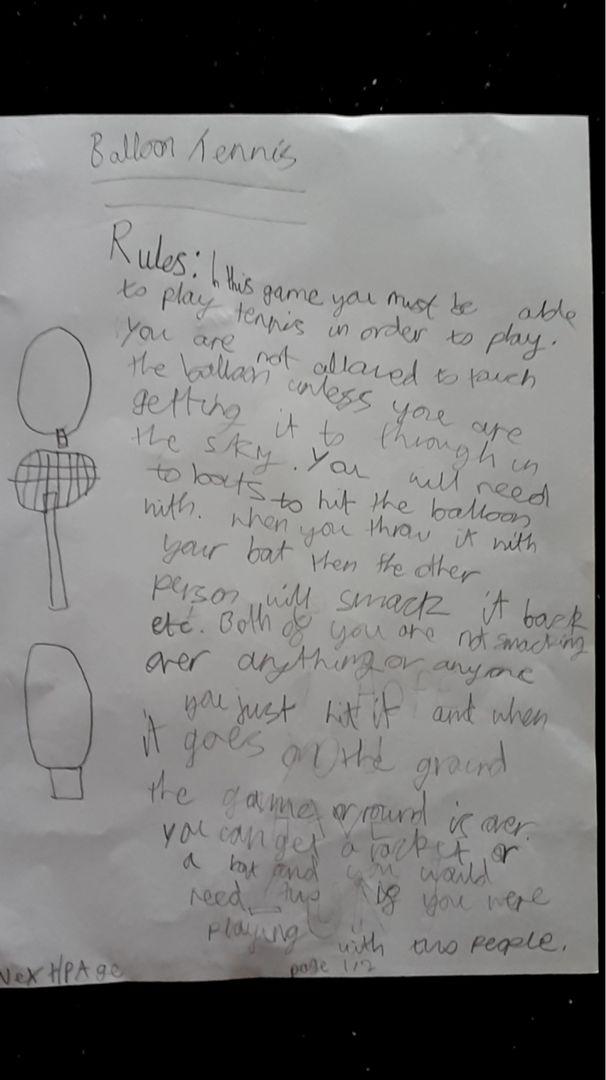 Balloon Tennis
Rules: In this game you must be able
to play tennis in order to play.
You are not allowed to touch
the balloon unless you are
getting it to through in
the sky. You will need
to bats to hit the balloon
with. when you throw it with
your bat then the other
person will smack it back
etc. Both of you are not smacking
over anything or anyone
you just hit it and when
it goes on the ground
the game or round is over.
you can get a racket or
a bat and you would
need two if you were
playing with two people.
Next PAge
page 1/2